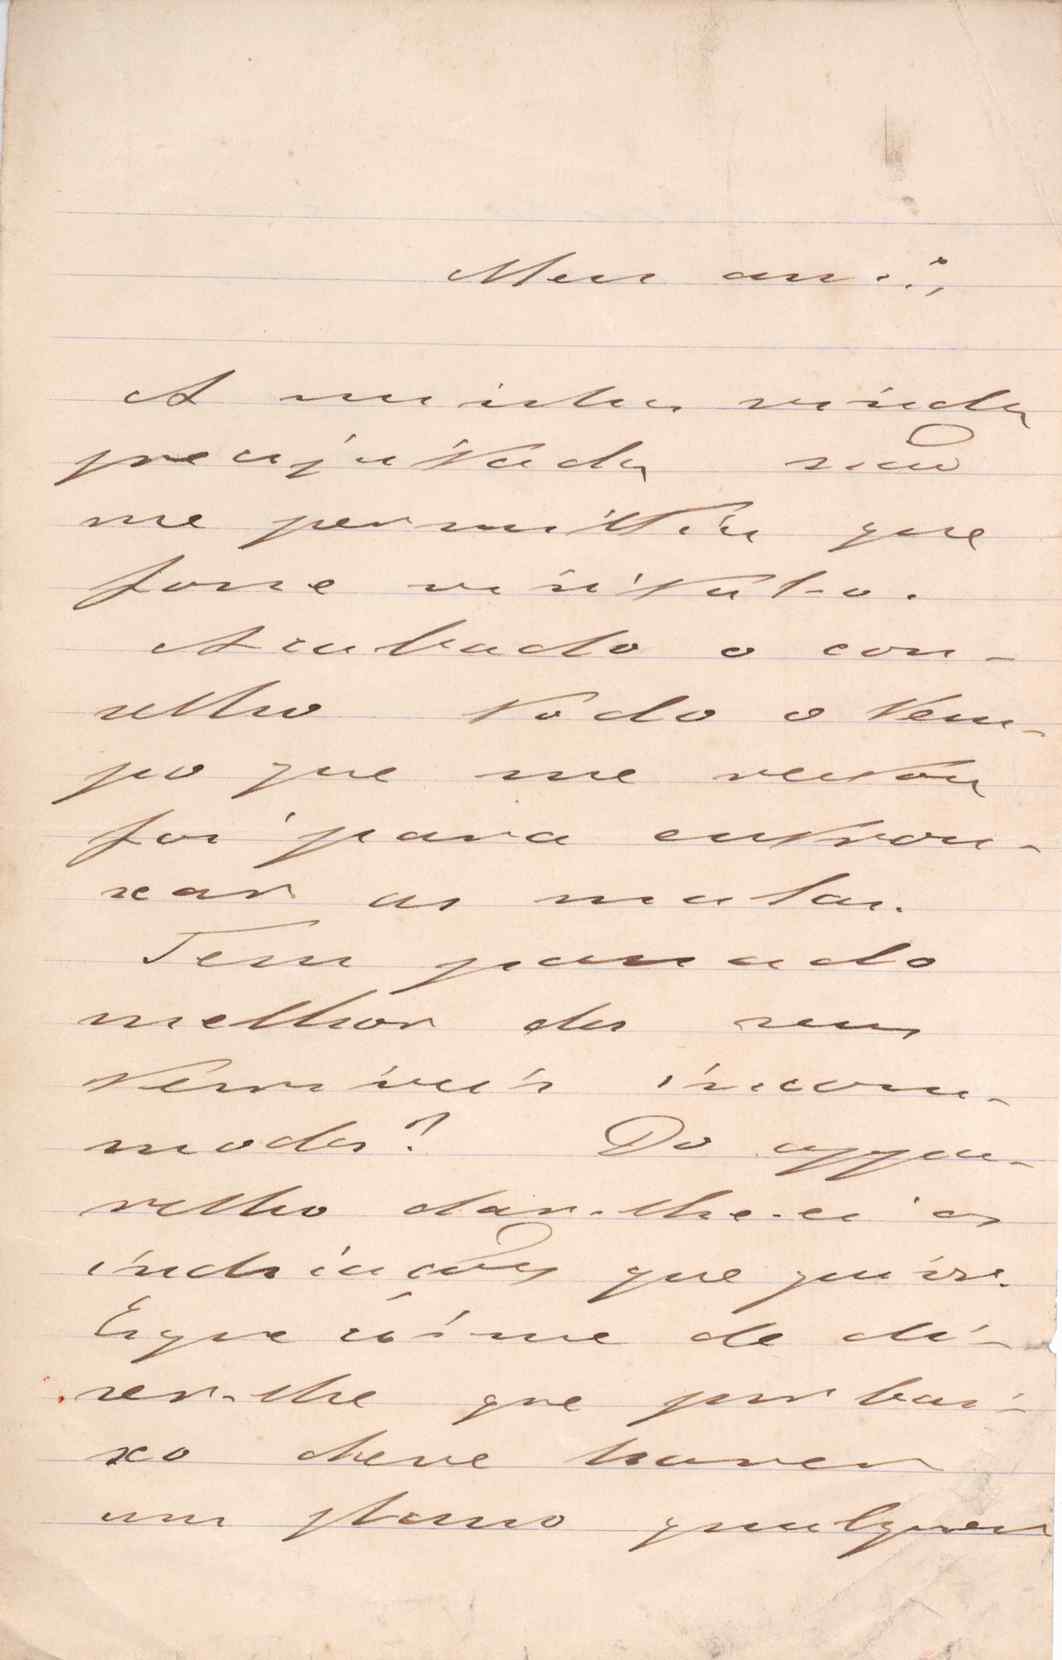 Meu am.º,
A minha vinda
precipitada não
me permittiu que
fosse visital-o.
Acabado o con-
selho todo o tem-
po que me restou
foi para entrou-
xar as malas.
Tem passado
melhor dos seus
terriveis incom-
modos? Do appa-
relho dar-lhe-ei as
indicações que quizer.
Esqueci-me de di-
zer-lhe que por bai-
xo deve haver
um panno qualquer